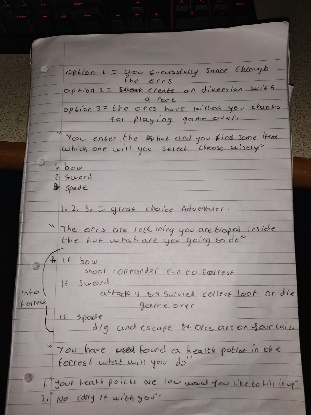 option 1 = you successfully sneak through
the orcs
option 2 = create an diversion with
a rock
option 3 = the orcs have killed you thanks
for playing game over.
"You enter the hut and you find some items
which one will you select choose wisely"
bow
sword
spade
1. 2. 3. = great choice Adventurer.
"The orcs are you are traped inside
the hut what are you going to do"
if bow
shoot run to forrest
If sword
attack collect loot or die
game over
If spade
dig and escape orcs are on
into
forrest
"You have found a health potion in the
forrest what will you do"
1. "Your health points are low would you like to fill it up"
2. "No carry it with you"